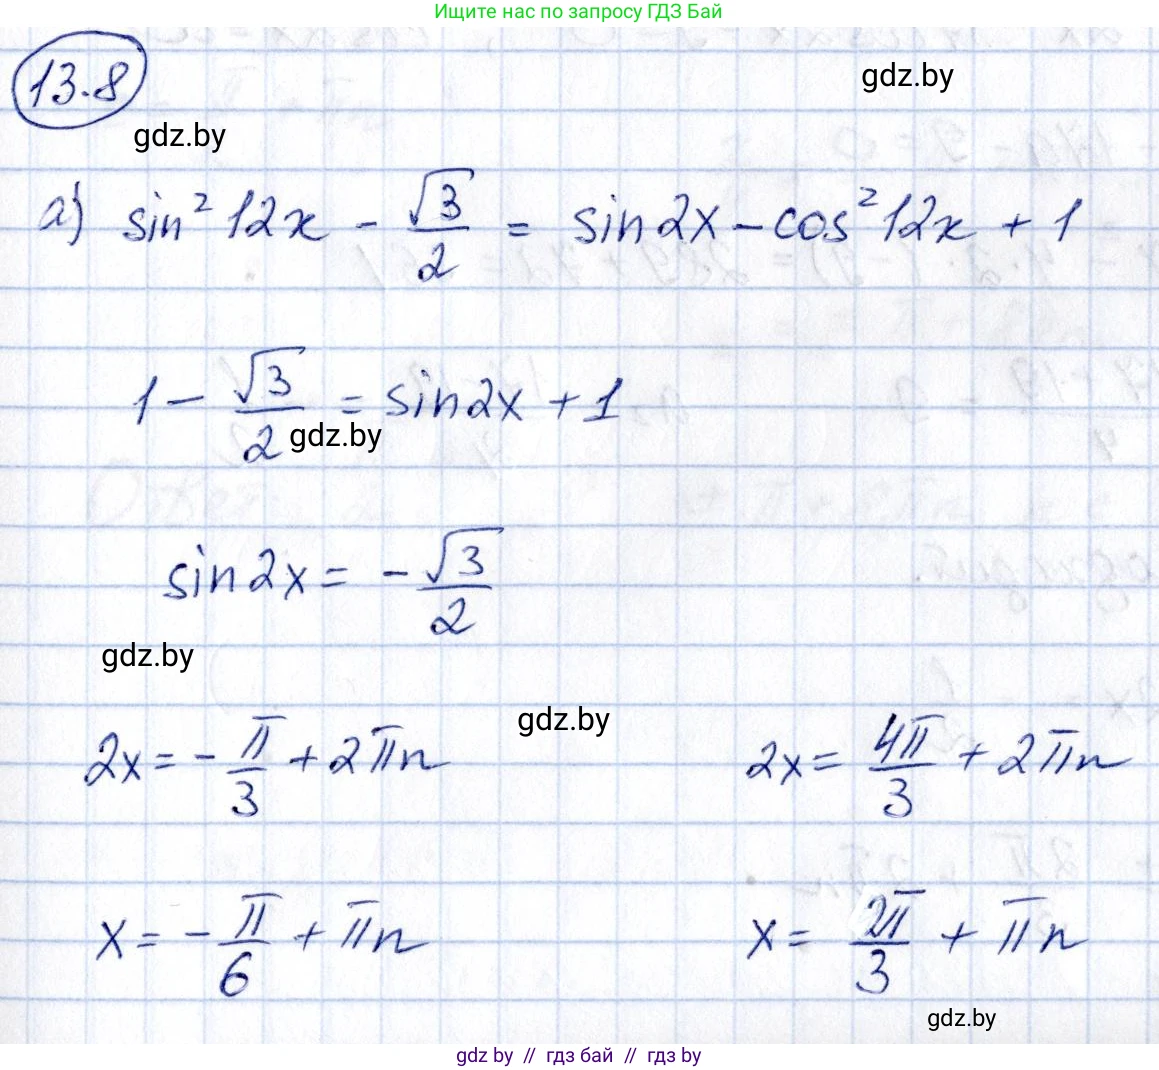 Ищите нас по запросу ГДЗ Бай
13.8
gdz.by
gdz.by
а) sin² 12x - √3/2 = sin2x - cos² 12x + 1
1 - √3/2 = sin2x + 1
gdz.by
sin2x = - √3/2
gdz.by
gdz.by
2x = - π/3 + 2πn 2x = 4π/3 + 2πn
x = - π/6 + πn x = 2π/3 + πn
gdz.by
gdz by // гдз бай // гдз by